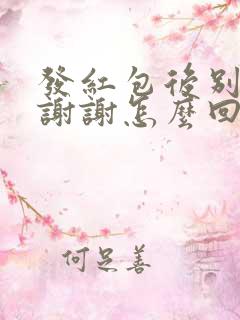 發紅包後別
謝謝怎麼回
何足善